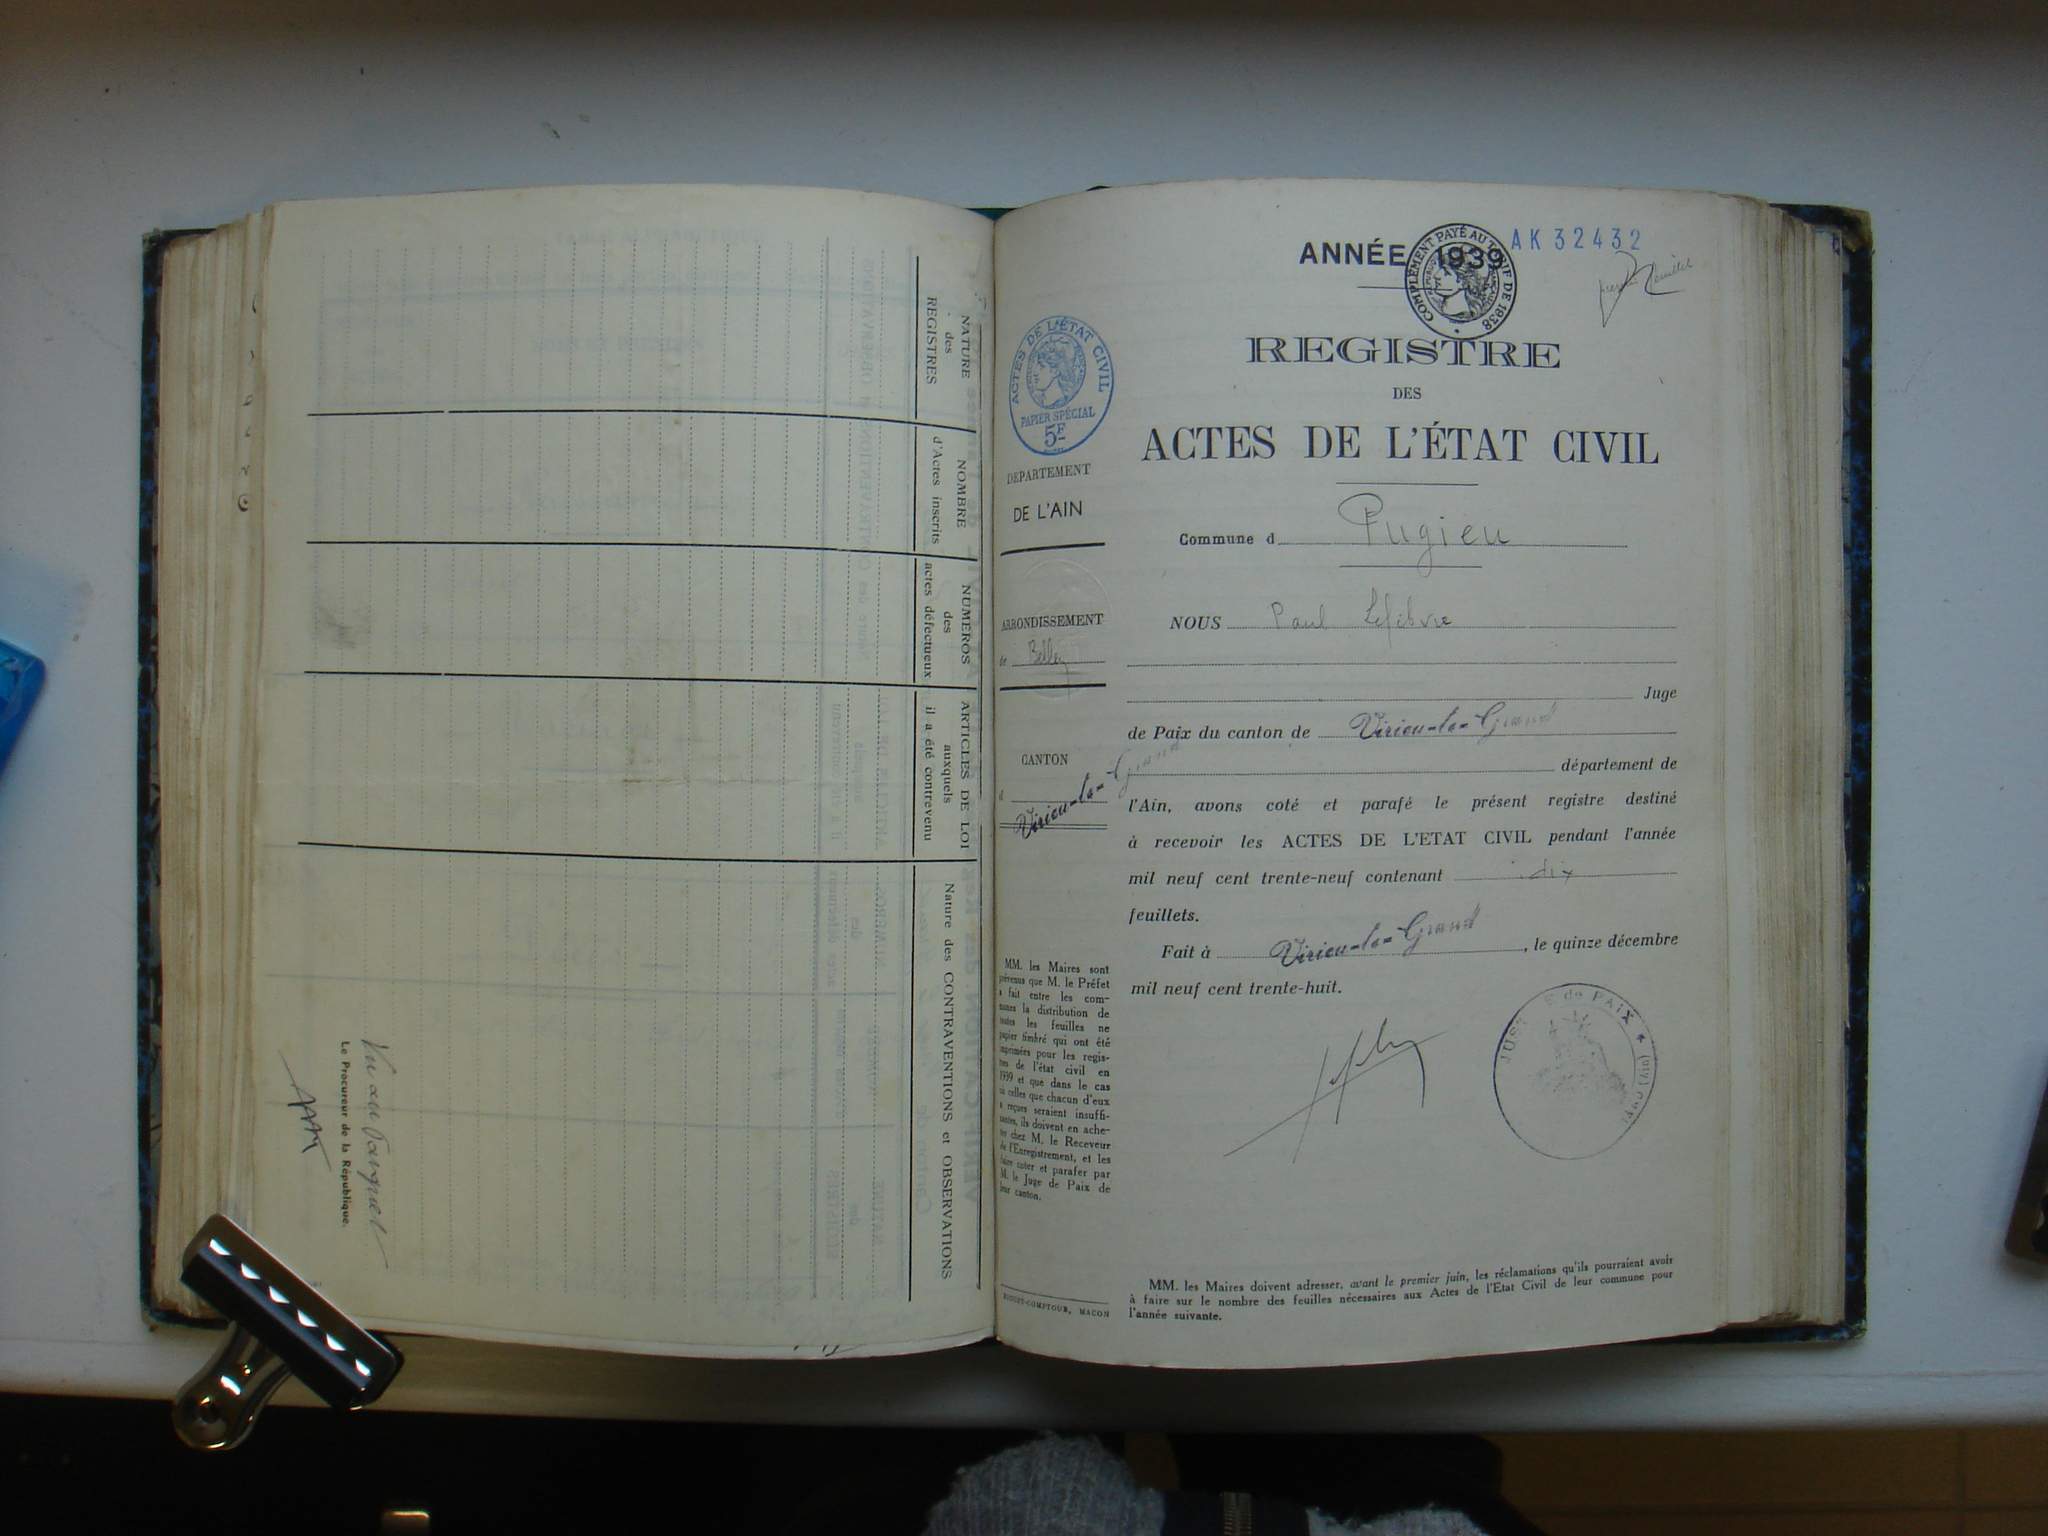 NATURE
des
REGISTRES
NOMBRE
d'Actes inscrits
NUMÉROS
des
actes défectueux
ARTICLES DE LOI
auxquels
il a été contrevenu
Nature des CONTRAVENTIONS et OBSERVATIONS
Vu au Parquet
Le Procureur de la République.
ANNÉE 1939
COMPLÉMENT PAYÉ AU TARIF DE 1938
AK 32432
REGISTRE
DES
ACTES DE L'ÉTAT CIVIL
ACTES DE L'ÉTAT CIVIL
PAPIER SPÉCIAL
5F
DÉPARTEMENT
DE L'AIN
ARRONDISSEMENT
de Belley
CANTON
d Virieu-le-Grand
Commune d Pugieu
NOUS Paul Lefebvre
Juge
de Paix du canton de Virieu-le-Grand
département de
l'Ain, avons coté et parafé le présent registre destiné
à recevoir les ACTES DE L'ETAT CIVIL pendant l'année
mil neuf cent trente-neuf contenant dix
feuillets.
Fait à Virieu-le-Grand, le quinze décembre
mil neuf cent trente-huit.
DE PAIX
MM. les Maires sont
prévenus que M. le Préfet
a fait entre les com-
munes la distribution de
toutes les feuilles ne
papier timbré qui ont été
imprimées pour les regis-
tres de l'état civil en
1939 et que dans le cas
où celles que chacun d'eux
a reçues seraient insuffi-
santes, ils doivent en ache-
ter chez M. le Receveur
de l'Enregistrement, et les
faire coter et parafer par
M. le Juge de Paix de
leur canton.
MM. les Maires doivent adresser, avant le premier juin, les réclamations qu'ils pourraient avoir
à faire sur le nombre des feuilles nécessaires aux Actes de l'Etat Civil de leur commune pour
l'année suivante.
COMPTOUR, MACON